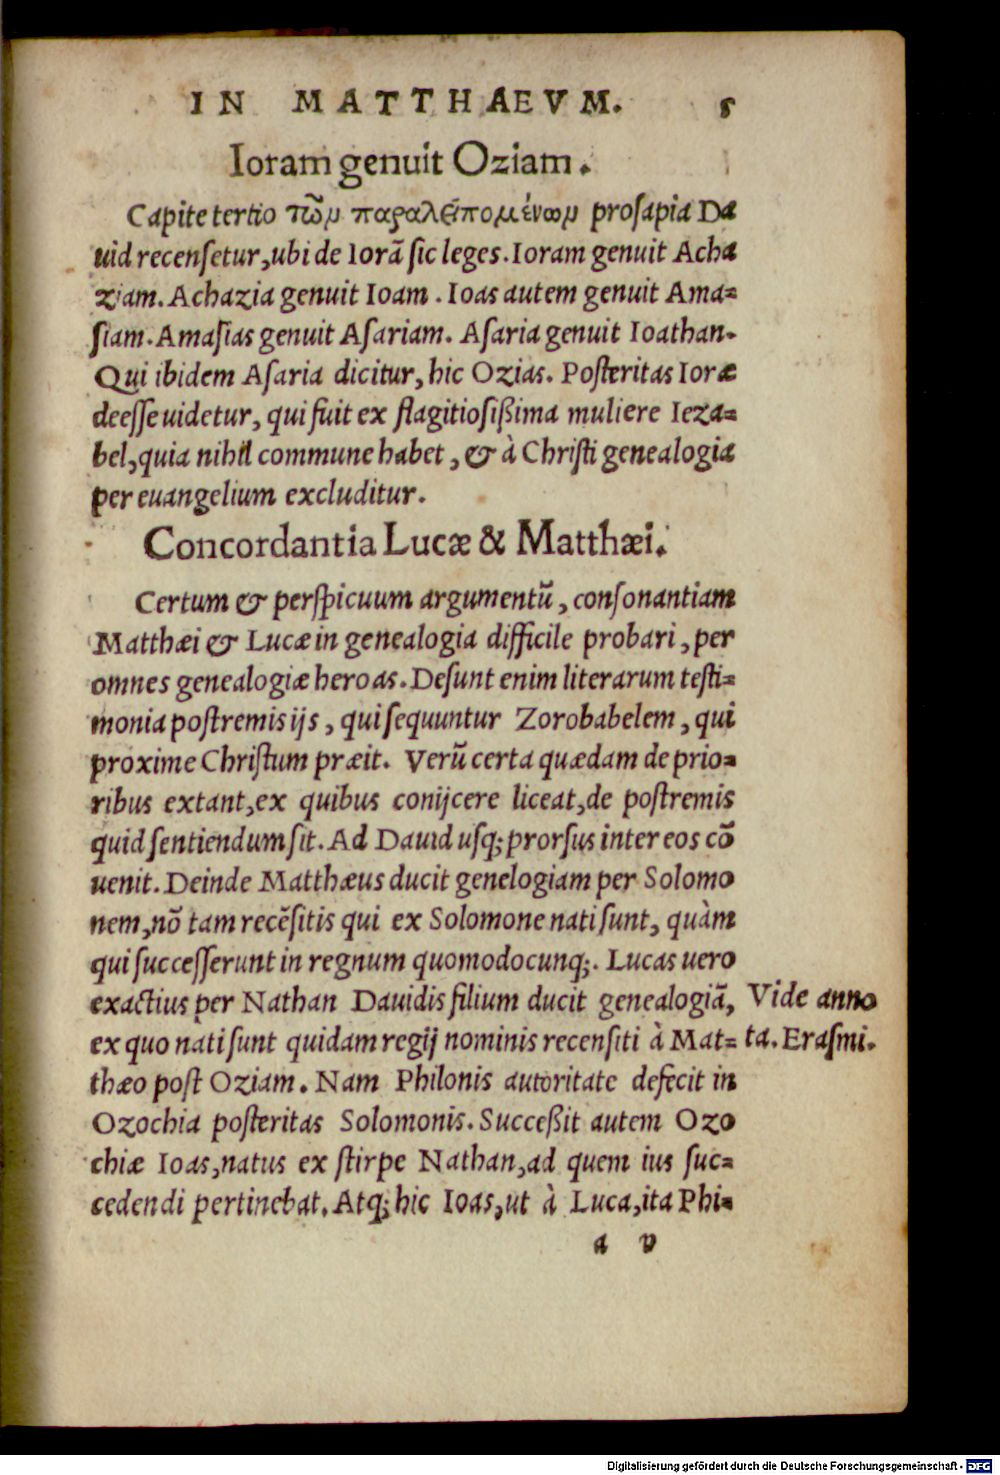 IN MATTHAEVM. 5
Ioram genuit Oziam.
Capite tertio τῶν παραλειπομένων prosapia Da
uid recensetur, ubi de Iorā sic leges. Ioram genuit Acha
ziam. Achazia genuit Ioam. Ioas autem genuit Ama=
siam. Amasias genuit Asariam. Asaria genuit Ioathan.
Qui ibidem Asaria dicitur, hic Ozias. Posteritas Ioræ
deesse uidetur, qui fuit ex flagitiosißima muliere Ieza=
bel, quia nihil commune habet, & à Christi genealogia
per euangelium excluditur.
Concordantia Lucæ & Matthæi.
Certum & perspicuum argumentū, consonantiam
Matthæi & Lucæ in genealogia difficile probari, per
omnes genealogiæ heroas. Desunt enim literarum testi=
monia postremis ijs, qui sequuntur Zorobabelem, qui
proxime Christum præit. Verū certa quædam de prio=
ribus extant, ex quibus conijcere liceat, de postremis
quid sentiendum sit. Ad Dauid usq; prorsus inter eos cō
uenit. Deinde Matthæus ducit genelogiam per Solomo
nem, nō tam recēsitis qui ex Solomone nati sunt, quàm
qui successerunt in regnum quomodocunq;. Lucas uero
exactius per Nathan Dauidis filium ducit genealogiā,
ex quo nati sunt quidam regij nominis recensiti à Mat=
thæo post Oziam. Nam Philonis autoritate defecit in
Ozochia posteritas Solomonis. Succeßit autem Ozo
chiæ Ioas, natus ex stirpe Nathan, ad quem ius suc=
cedendi pertinebat. Atq; hic Ioas, ut à Luca, ita Phi=
a v
Vide anno
ta. Erasmi.
Digitalisierung gefördert durch die Deutsche Forschungsgemeinschaft - DFG